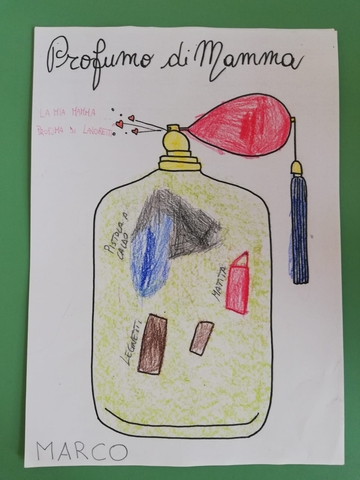 Profumo di Mamma
LA MIA MAMMA
PROFUMA DI LAVORETTI
PISTOLA A
CALDO
MATITA
LEGNETTI
MARCO